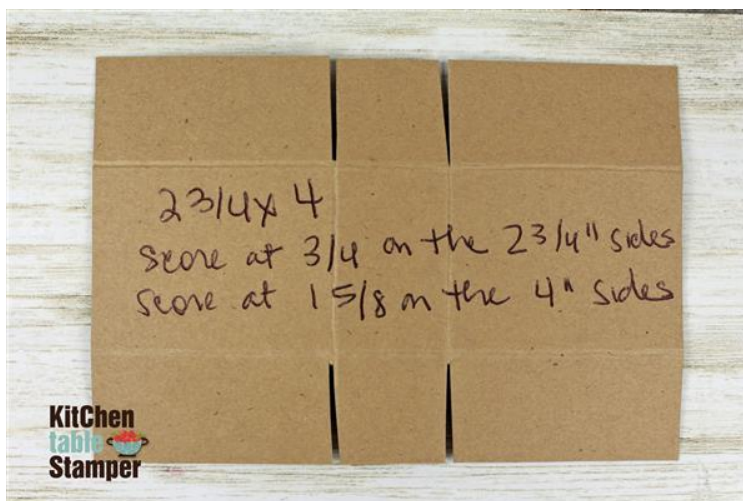 2 3/4 x 4
score at 3/4 on the 2 3/4" sides
score at 1 5/8 on the 4" sides
KitChen
table
Stamper